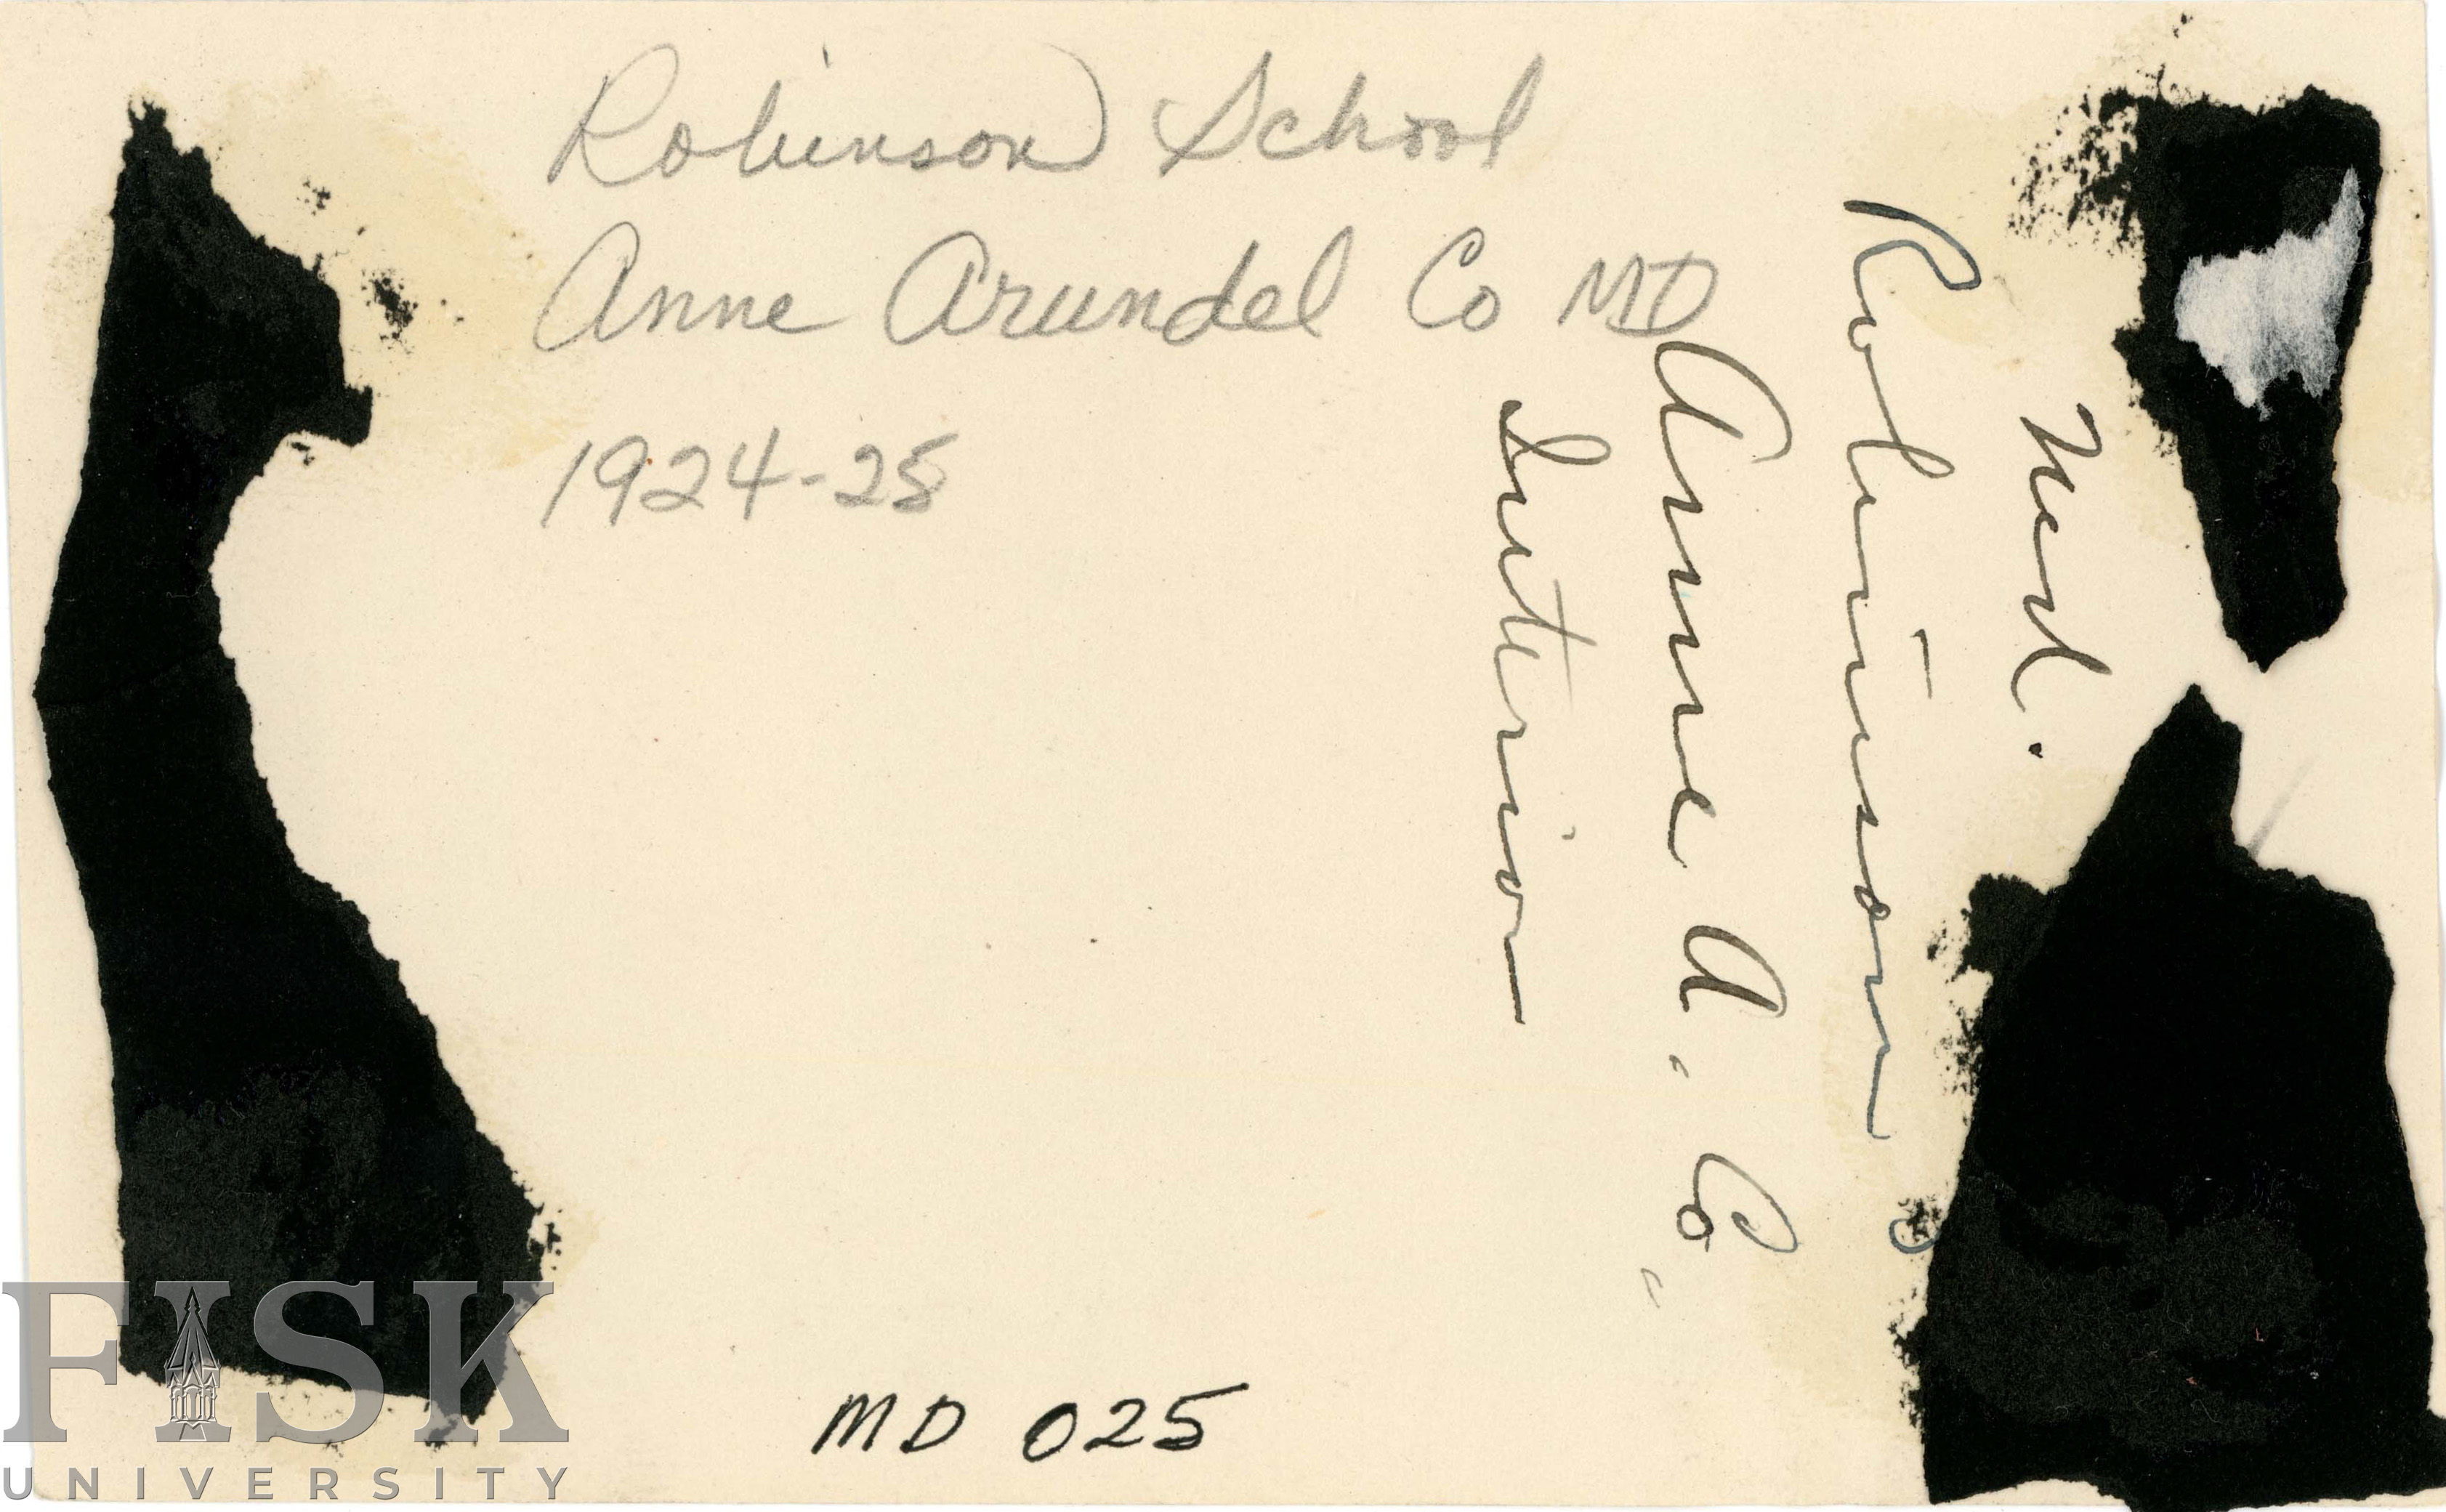 Robinson School
Anne Arundel Co MD
1924-25
Md.
Robinson
Anne A. Co.
Interior
MD 025
FISK
UNIVERSITY